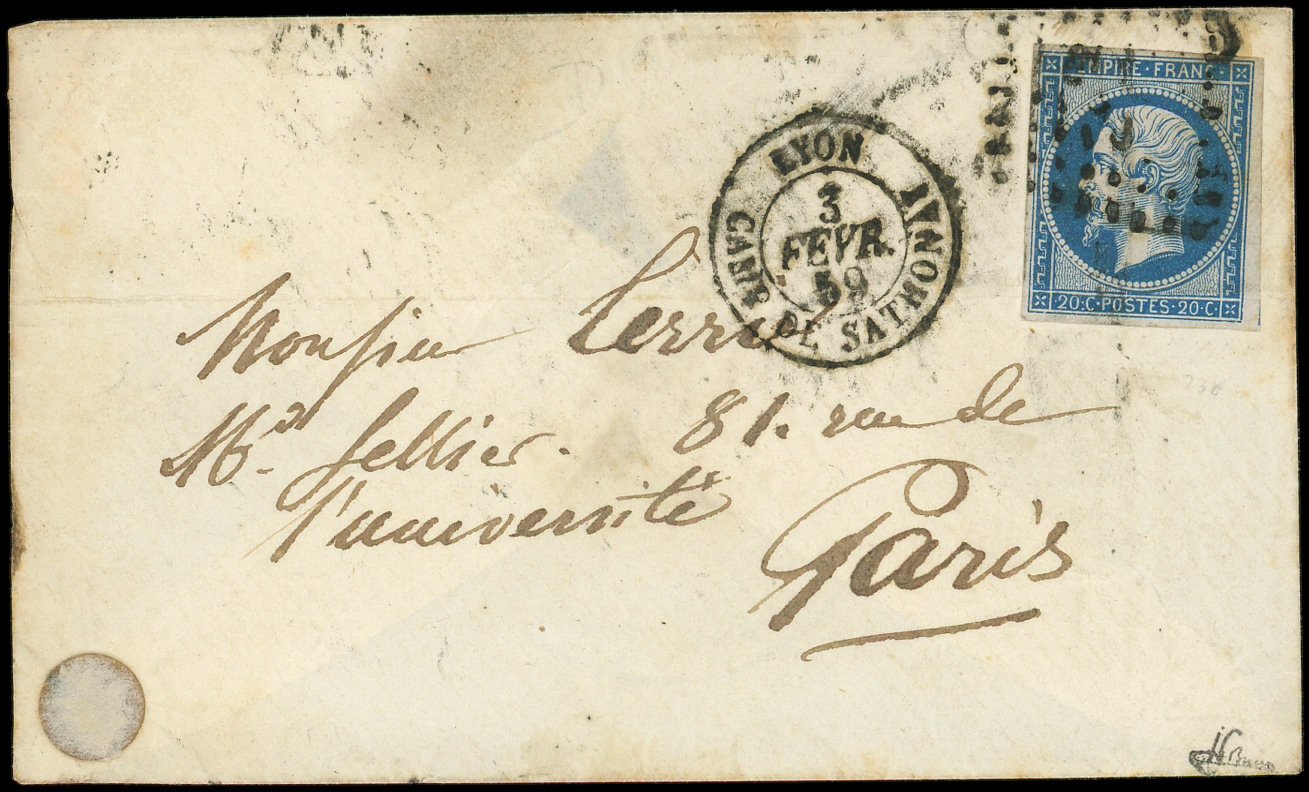 EMPIRE · FRANC ·
20·C·POSTES·20·C·
LYON
CAMP DE SATHONAY
3
FEVR.
59
Monsieur
Mon Sellier. 81. rue de
l'université
Paris